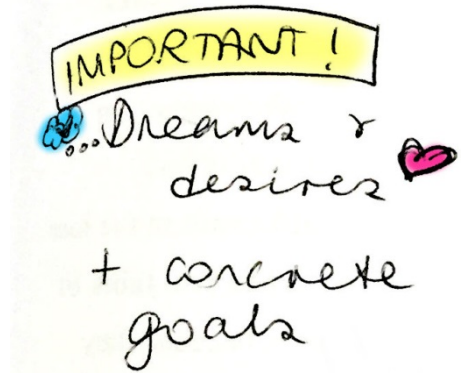 IMPORTANT!
...Dreams &
desires
+ concrete
goals